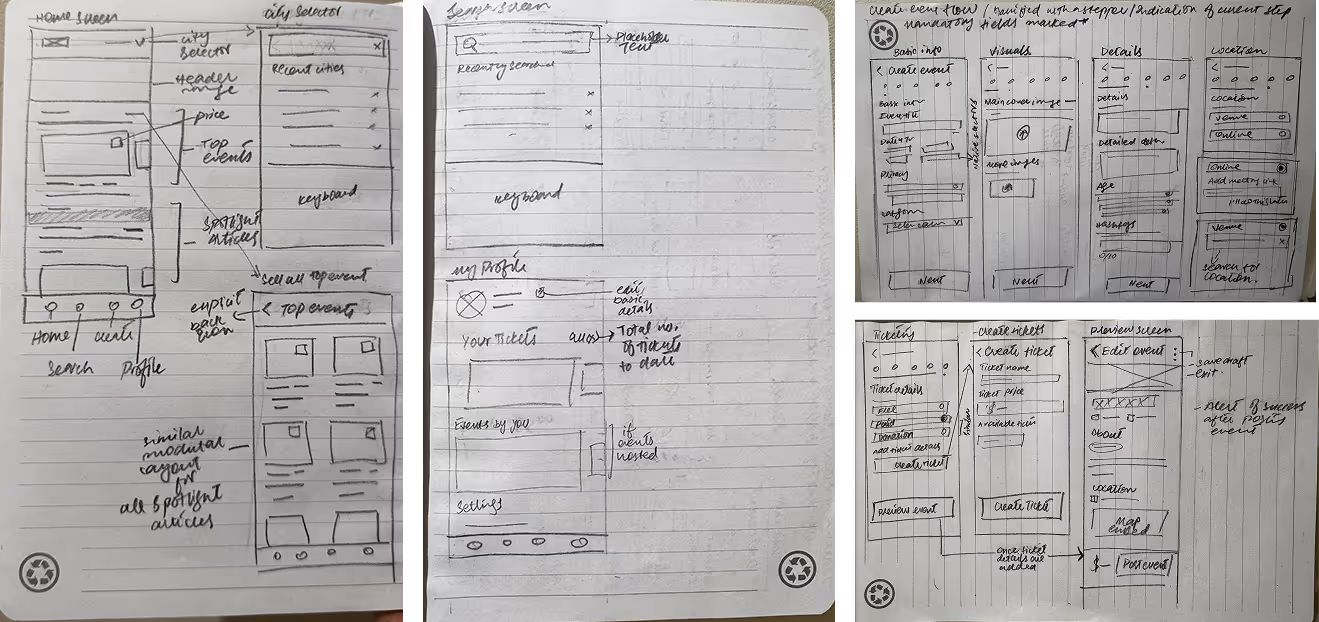 Home screen
City Selector
City
Selector
Header
image
price
Top
events
Spotlight
articles
Home
Search
Profile
Recent cities
x
x
x
x
x
Keyboard
See all top event
explicit
back
< Top events
similar
modular
layout
for
all spotlight
articles
Search screen
Placeholder
Text
Recently searched
x
x
x
Keyboard
My Profile
edit
basic
details
Your Tickets
Total no.
of tickets
to date
Events by you
if
events
hosted
Settings
Create event flow / Mandatory fields marked*
with a stepper / indication of current step
Basic info
< Create event
Basic info
Event title
Privacy
Next
Native selectors
Visuals
<
Main cover image
More images
Next
Details
<
Details
Detailed
Age
Hashtags
0/10
Next
Location
<
Location
Venue
Online
Online
Add meeting link
Venue
x
Search for
location.
Ticketing
<
Ticket details
Free
Paid
Donation
Add ticket details
Create ticket
Preview event
Create tickets
< Create ticket
Ticket name
Ticket price
$
Available tickets
Create Ticket
once ticket
details are
added
Preview screen
< Edit event
save draft
exit.
XXXXX
About
Location
Map
embed
$
Post event
- Alert of success
after posting
event